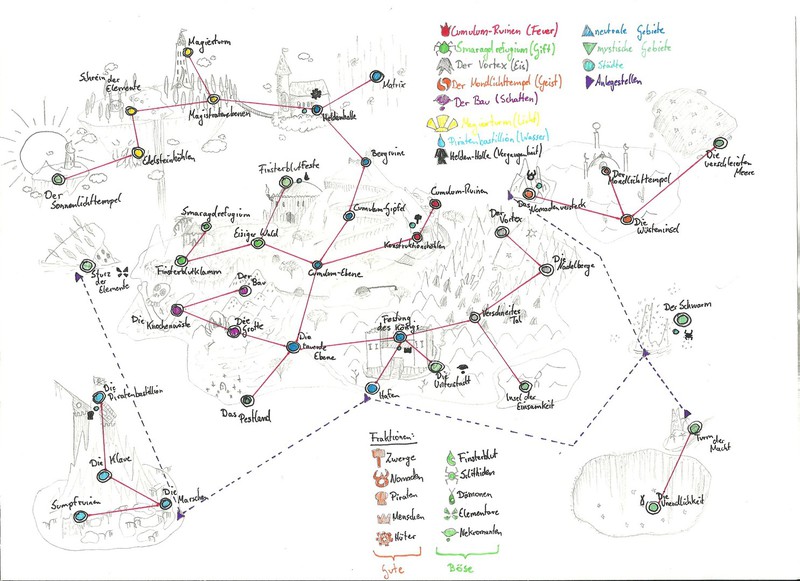 Cumulum-Ruinen (Feuer)
Smaragdrefugium (Gift)
Der Vortex (Eis)
Der Mondlichttempel (Geist)
Der Bau (Schatten)
Magierturm (Licht)
Piratenbastillion (Wasser)
Helden-Halle (Vergangenheit)
neutrale Gebiete
mystische Gebiete
Städte
Anlegestellen
Magierturm
Schrein der
Elemente
Magistratsebenen
Heldenhalle
Matrix
Edelsteinhöhlen
Der
Sonnenlichttempel
Bergruine
Finsterblutfeste
Cumulum-Gipfel
Cumulum-Ruinen
Konstruktionshöhlen
Smaragdrefugium
Eisiger Wald
Finsterblutklamm
Cumulum-Ebene
Die verschleierten
Meere
Der
Mondlichttempel
Das
Nomadenversteck
Die
Wüsteninsel
Der
Vortex
Die
Nadelberge
Sturz
der
Elemente
Der
Bau
Die
Knochenwüste
Die
Grotte
Die
Ebene
Festung
des Königs
Verschneites
Tal
Der Schwarm
Das
Pestland
Hafen
Die
Unterstadt
Insel der
Einsamkeit
Die
Piratenbastillion
Die
Klave
Die
Marschen
Sumpfruinen
Turm
der
Macht
Die
Unendlichkeit
Fraktionen:
Zwerge
Nomaden
Piraten
Menschen
Hüter
Gute
Finsterblut
Silithiden
Dämonen
Elementare
Nekromanten
Böse